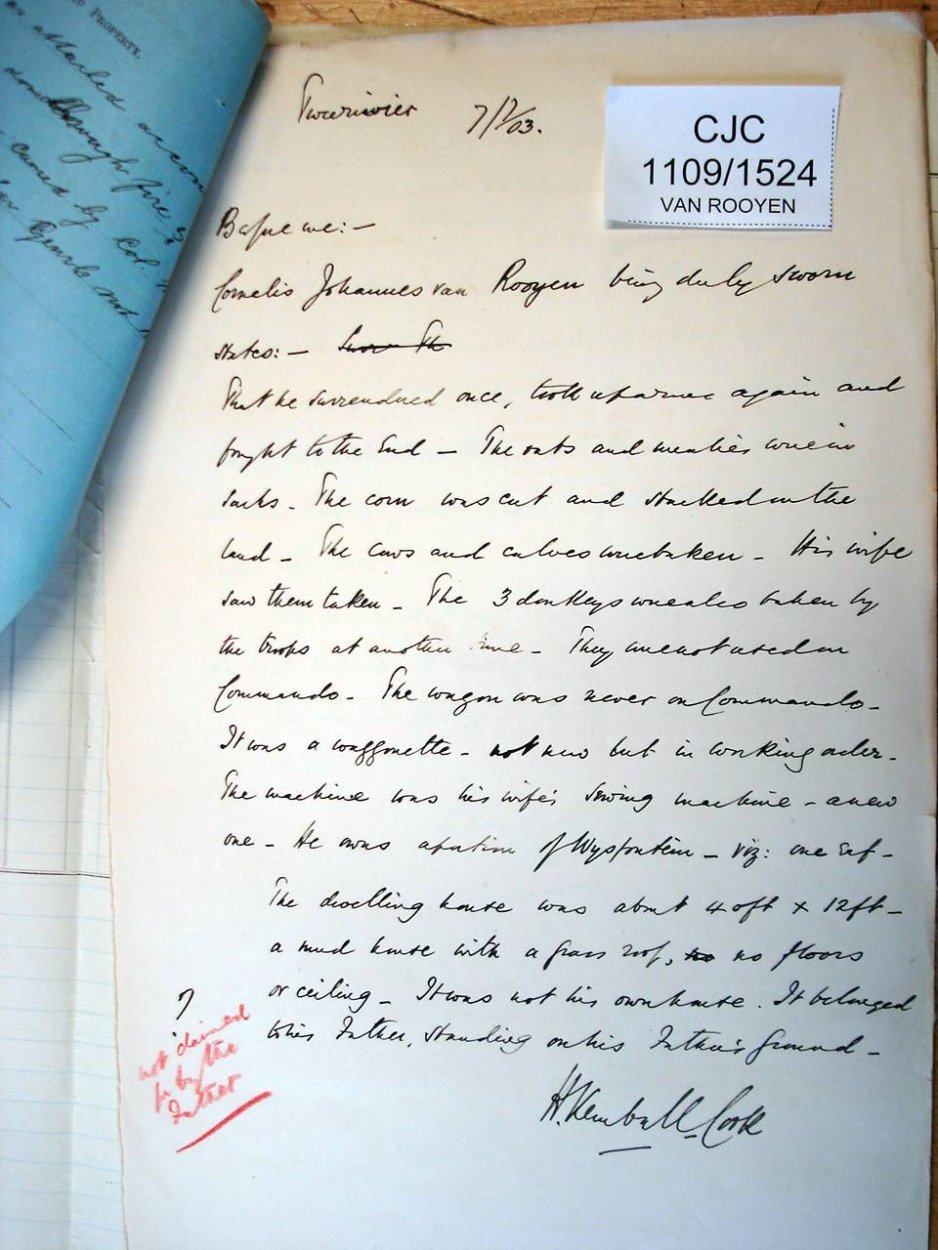 PROPERTY.
attached
through fire
caused by Col.
not
7/7/03.
CJC
1109/1524
VAN ROOYEN
Before me:-
Cornelis Johannes van Rooyen being duly sworn
states:-
That he surrendered once, took up arms again and
fought to the End - The oats and mealies were in
sacks. The corn was cut and stacked on the
land - The cows and calves were taken - His wife
saw them taken - The 3 donkeys were also taken by
the troops at another time - They were not used on
Commando - The wagon was never on Commando -
It was a waggonette - not new but in working order -
The machine was his wife's sewing machine - a new
one - He owns a portion of Wysfontein - viz: one erf -
The dwelling house was about 40ft x 12ft -
a mud house with a grass roof, no no floors
or ceiling - It was not his own house. It belonged
to his Father, standing on his Father's ground -
?
not claimed
for by the
Father
H. Kemball-Cook